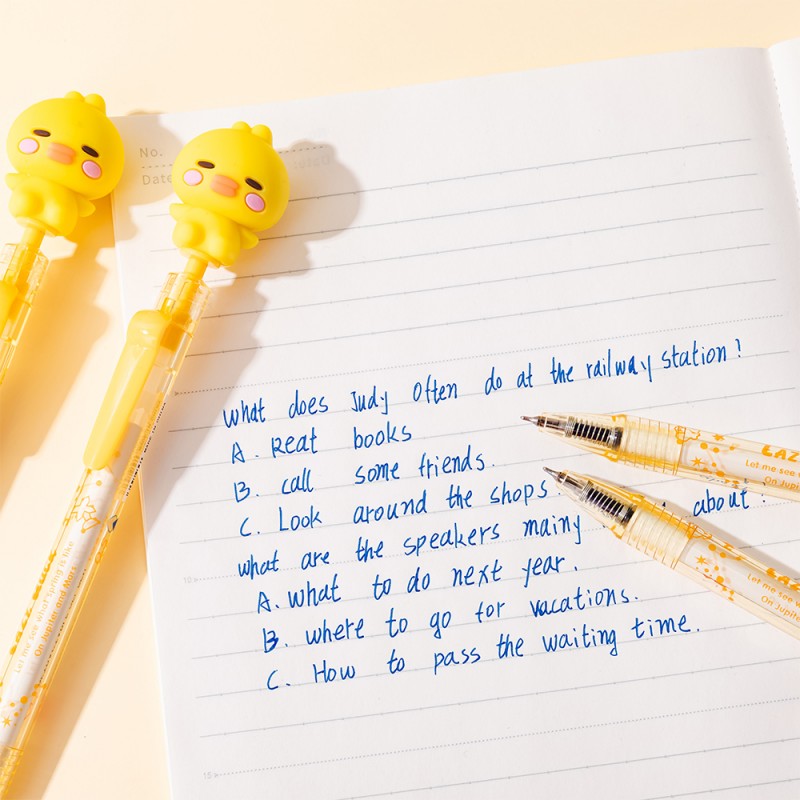 No.
Date
What does Judy Often do at the railway station?
A. Reat books
B. call some friends.
C. Look around the shops.
what are the speakers mainy about?
A. what to do next year.
B. where to go for vacations.
C. How to pass the waiting time.
10
15
Let me see what spring is like
On Jupiter and Mars
LAZ
Let me see w
On Jupi
Let me see w
On Jupite